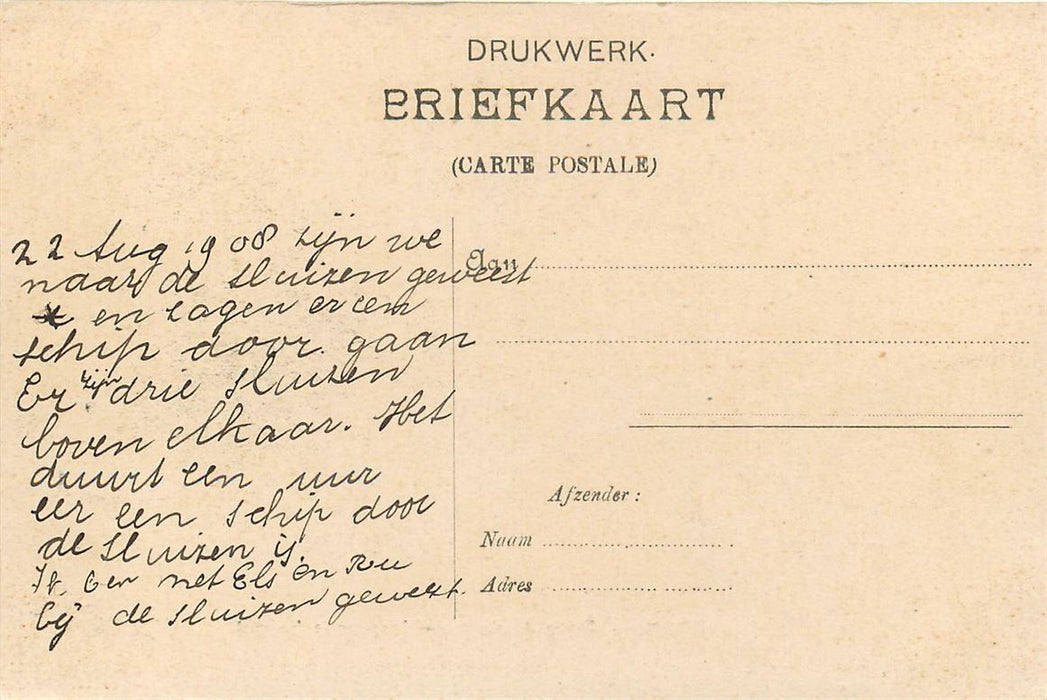 DRUKWERK.
BRIEFKAART
(CARTE POSTALE)
22 Aug 1908 zijn we
naar de sluizen geweest
en zagen er een
schip door gaan
Er zijn drie sluizen
boven elkaar. Het
duurt een uur
eer een schip door
de sluizen is.
Ik ben met Els en Ru
bij de sluizen geweest.
Aan
Afzender:
Naam
Adres